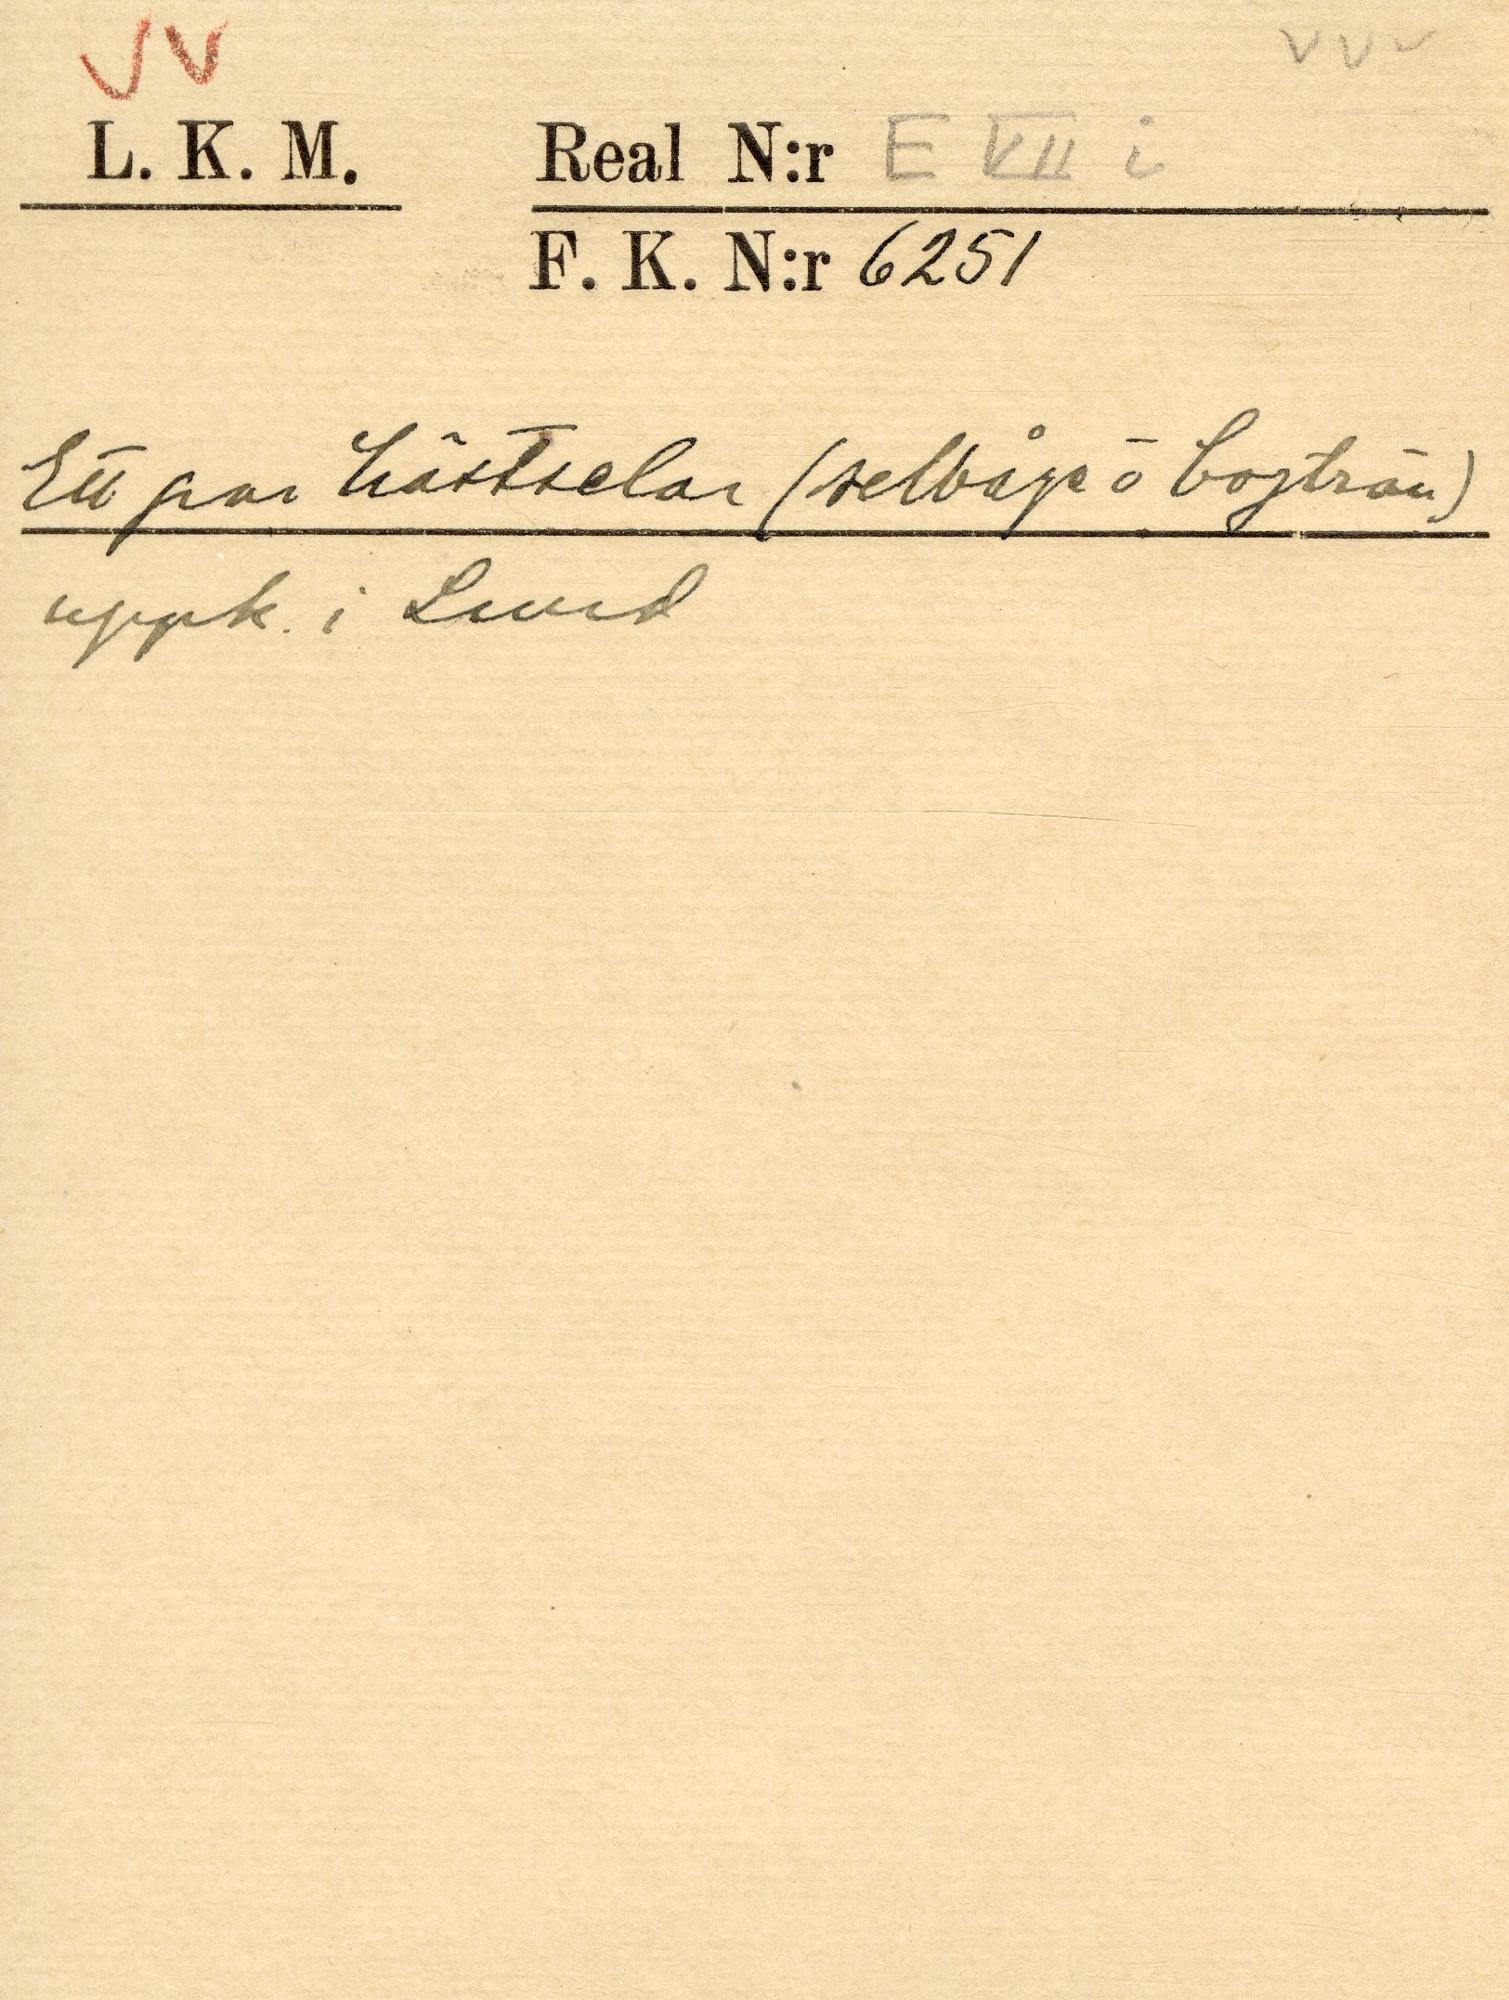 V V
v v v
L. K. M. Real N:r E VII i
F. K. N:r 6251
Ett par hästselar (selbåge ō bogträn)
uppk. i Lund